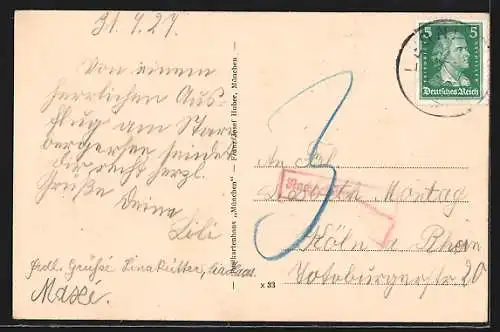 31. 7. 27.
Von einem
herrlichen Aus-
flug am Starn
bergersee sendet
dir recht herzl.
Grüße Deine
Lili
Frdl. Grüße Lina Reitter,
Postkartenhaus „München“ — Franz Josef Huber, München
5 5
Deutsches Reich
An Frl.
Montag
Köln a Rhein
Lotoburgerstr 20
x 33
3